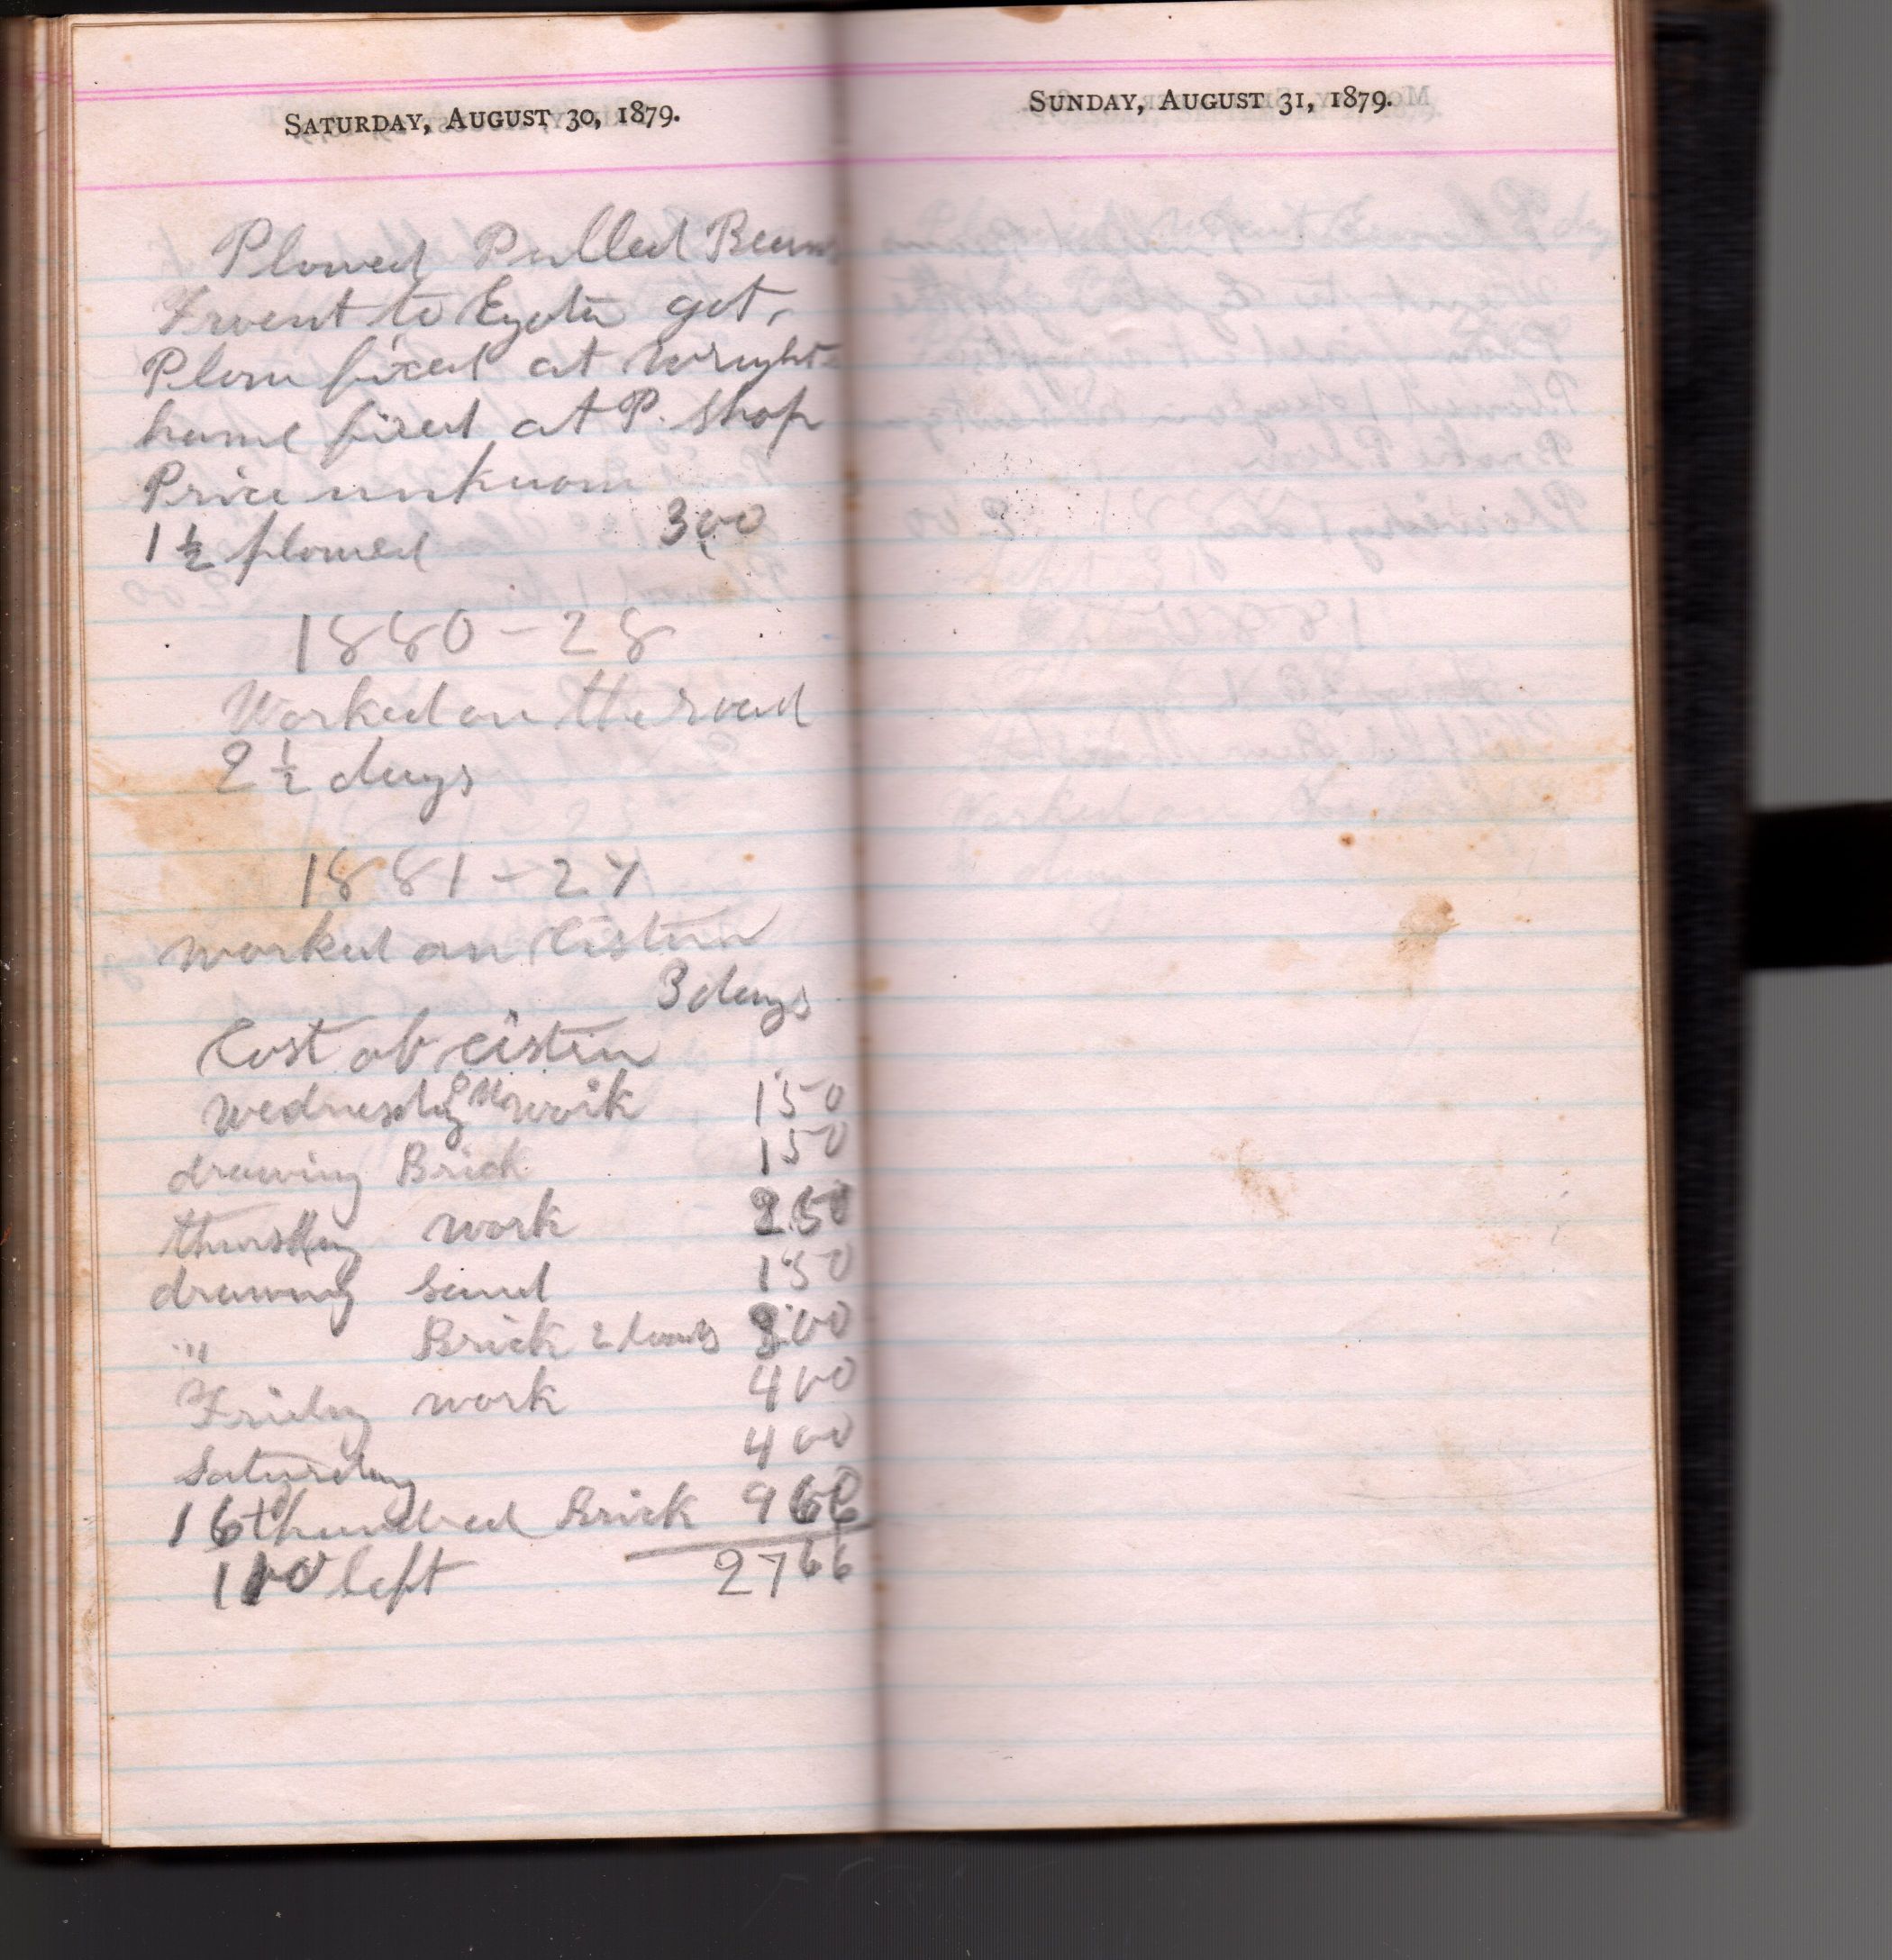 SATURDAY, AUGUST 30, 1879.
Plowed Pulled Beans
F went to Eyota got
Plow fixed at Wright
hame fixed at P. Shop
Price unknown
1 ½ plowed 300
1880 - 28
Worked on the road
2 ½ days
1881 - 27
Worked on Cistern
3 days
Cost of cistern
Wednesday work 150
drawing Brick 150
thursday work 250
drawing Sand 150
" Brick 2 loads 300
Friday work 400
Saturday 400
16 hundred Brick 966
100 left 2766
SUNDAY, AUGUST 31, 1879.